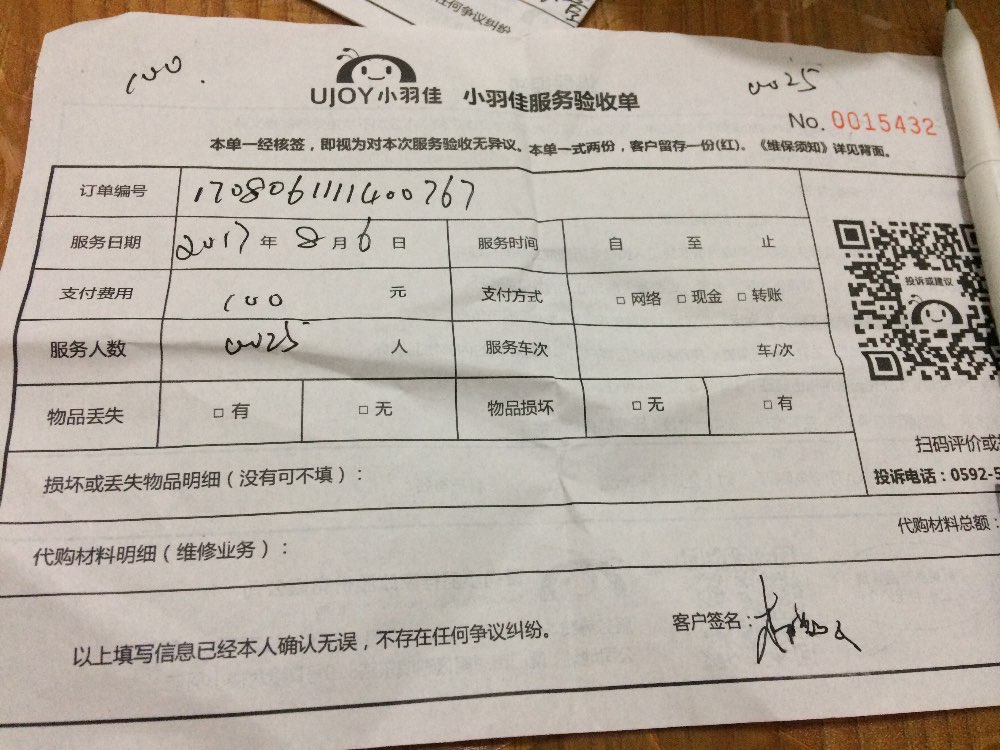 任何争议纠纷
100.
0025
UJOY小羽佳 小羽佳服务验收单
No. 0015432
本单一经核签，即视为对本次服务验收无异议。本单一式两份，客户留存一份(红)。《维保须知》详见背面。
订单编号 17080611111400767
服务日期 2017 年 8 月 6 日 服务时间 自 至 止
支付费用 100 元 支付方式 □ 网络 □ 现金 □ 转账
投诉或建议
服务人数 0025 人 服务车次 车/次
物品丢失 □ 有 □ 无 物品损坏 □ 无 □ 有
扫码评价或
损坏或丢失物品明细（没有可不填）：
投诉电话：0592-5
代购材料明细（维修业务）：
代购材料总额：
以上填写信息已经本人确认无误，不存在任何争议纠纷。
客户签名：